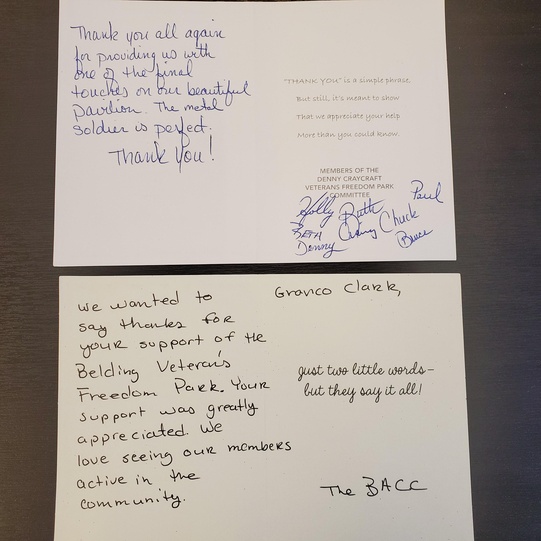 Thank you all again
for providing us with
one of the final
touches on our beautiful
pavilion. The metal
soldier is perfect.
Thank You!
"THANK YOU" is a simple phrase.
But still, it's meant to show
That we appreciate your help
More than you could know.
MEMBERS OF THE
DENNY CRAYCRAFT
VETERANS FREEDOM PARK
COMMITTEE
Holly Ruth Paul
Chuck
Denny Bruce
we wanted to
say thanks for
your support of the
Belding Veteran's
Freedom Park. Your
support was greatly
appreciated. We
love seeing our members
active in the
community.
Granco Clark,
just two little words–
but they say it all!
The BACC